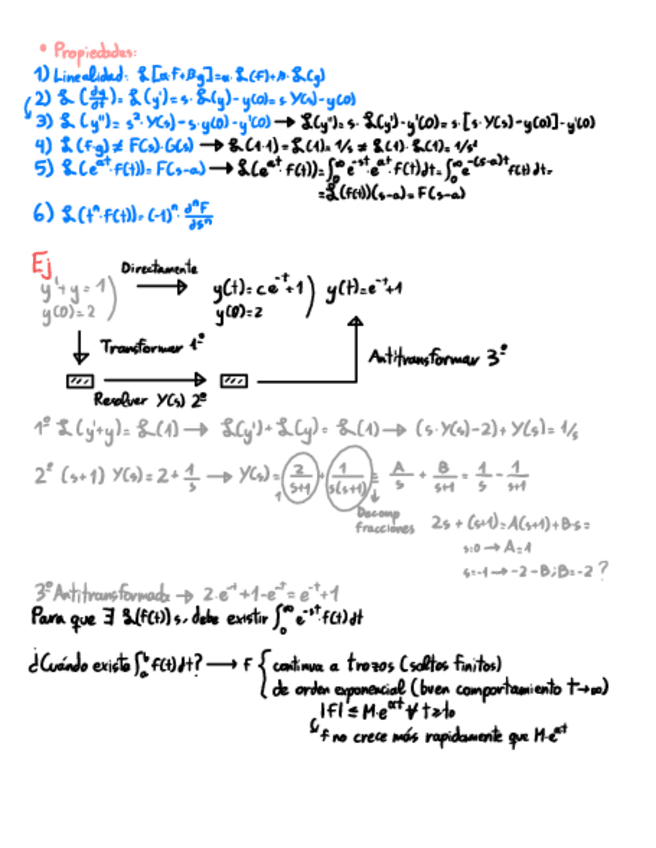 • Propiedades:
1) Linealidad: L[α·F+βg]=α·L(F)+β·L(g)
2) L(dy/dt)=L(y')=s·L(y)-y(0)=s·Y(s)-y(0)
3) L(y'')=s²·Y(s)-s·y(0)-y'(0) → L(y'')=s·L(y')-y'(0)=s·[s·Y(s)-y(0)]-y'(0)
4) L(f·g)≠F(s)·G(s) → L(1·1)=L(1)=1/s ≠ L(1)·L(1)=1/s²
5) L(e^at·f(t))=F(s-a) → L(e^at·f(t))=∫₀^∞ e^-st·e^at·f(t)dt=∫₀^∞ e^-(s-a)t f(t)dt=
=L(f(t))(s-a)=F(s-a)
6) L(t^n·f(t))=(-1)^n·d^nF/ds^n
Ej
y'+y=1) Directamente → y(t)=ce^-t+1) y(t)=e^-t+1
y(0)=2 y(0)=2
Transformar 1º
Antitransformar 3º
Resolver Y(s) 2º
1º L(y'+y)=L(1) → L(y')+L(y)=L(1) → (s·Y(s)-2)+Y(s)=1/s
2º (s+1)Y(s)=2+1/s → Y(s)=2/s+1+1/s(s+1)= A/s + B/s+1 = 1/s - 1/s+1
Decomp
fracciones 2s+(s+1)=A(s+1)+B·s=
s=0 → A=1
s=-1 → -2=-B; B=-2?
3º Antitransformada → 2·e^-t+1-e^-t=e^-t+1
Para que ∃ L(f(t)) s, debe existir ∫₀^∞ e^-st·f(t)dt
¿Cuándo existe ∫ₐ^b f(t)dt? → F { continua a trozos (saltos finitos)
de orden exponencial (buen comportamiento t→∞)
|f| ≤ M·e^αt ∀ t≥t₀
f no crece más rapidamente que M·e^αt